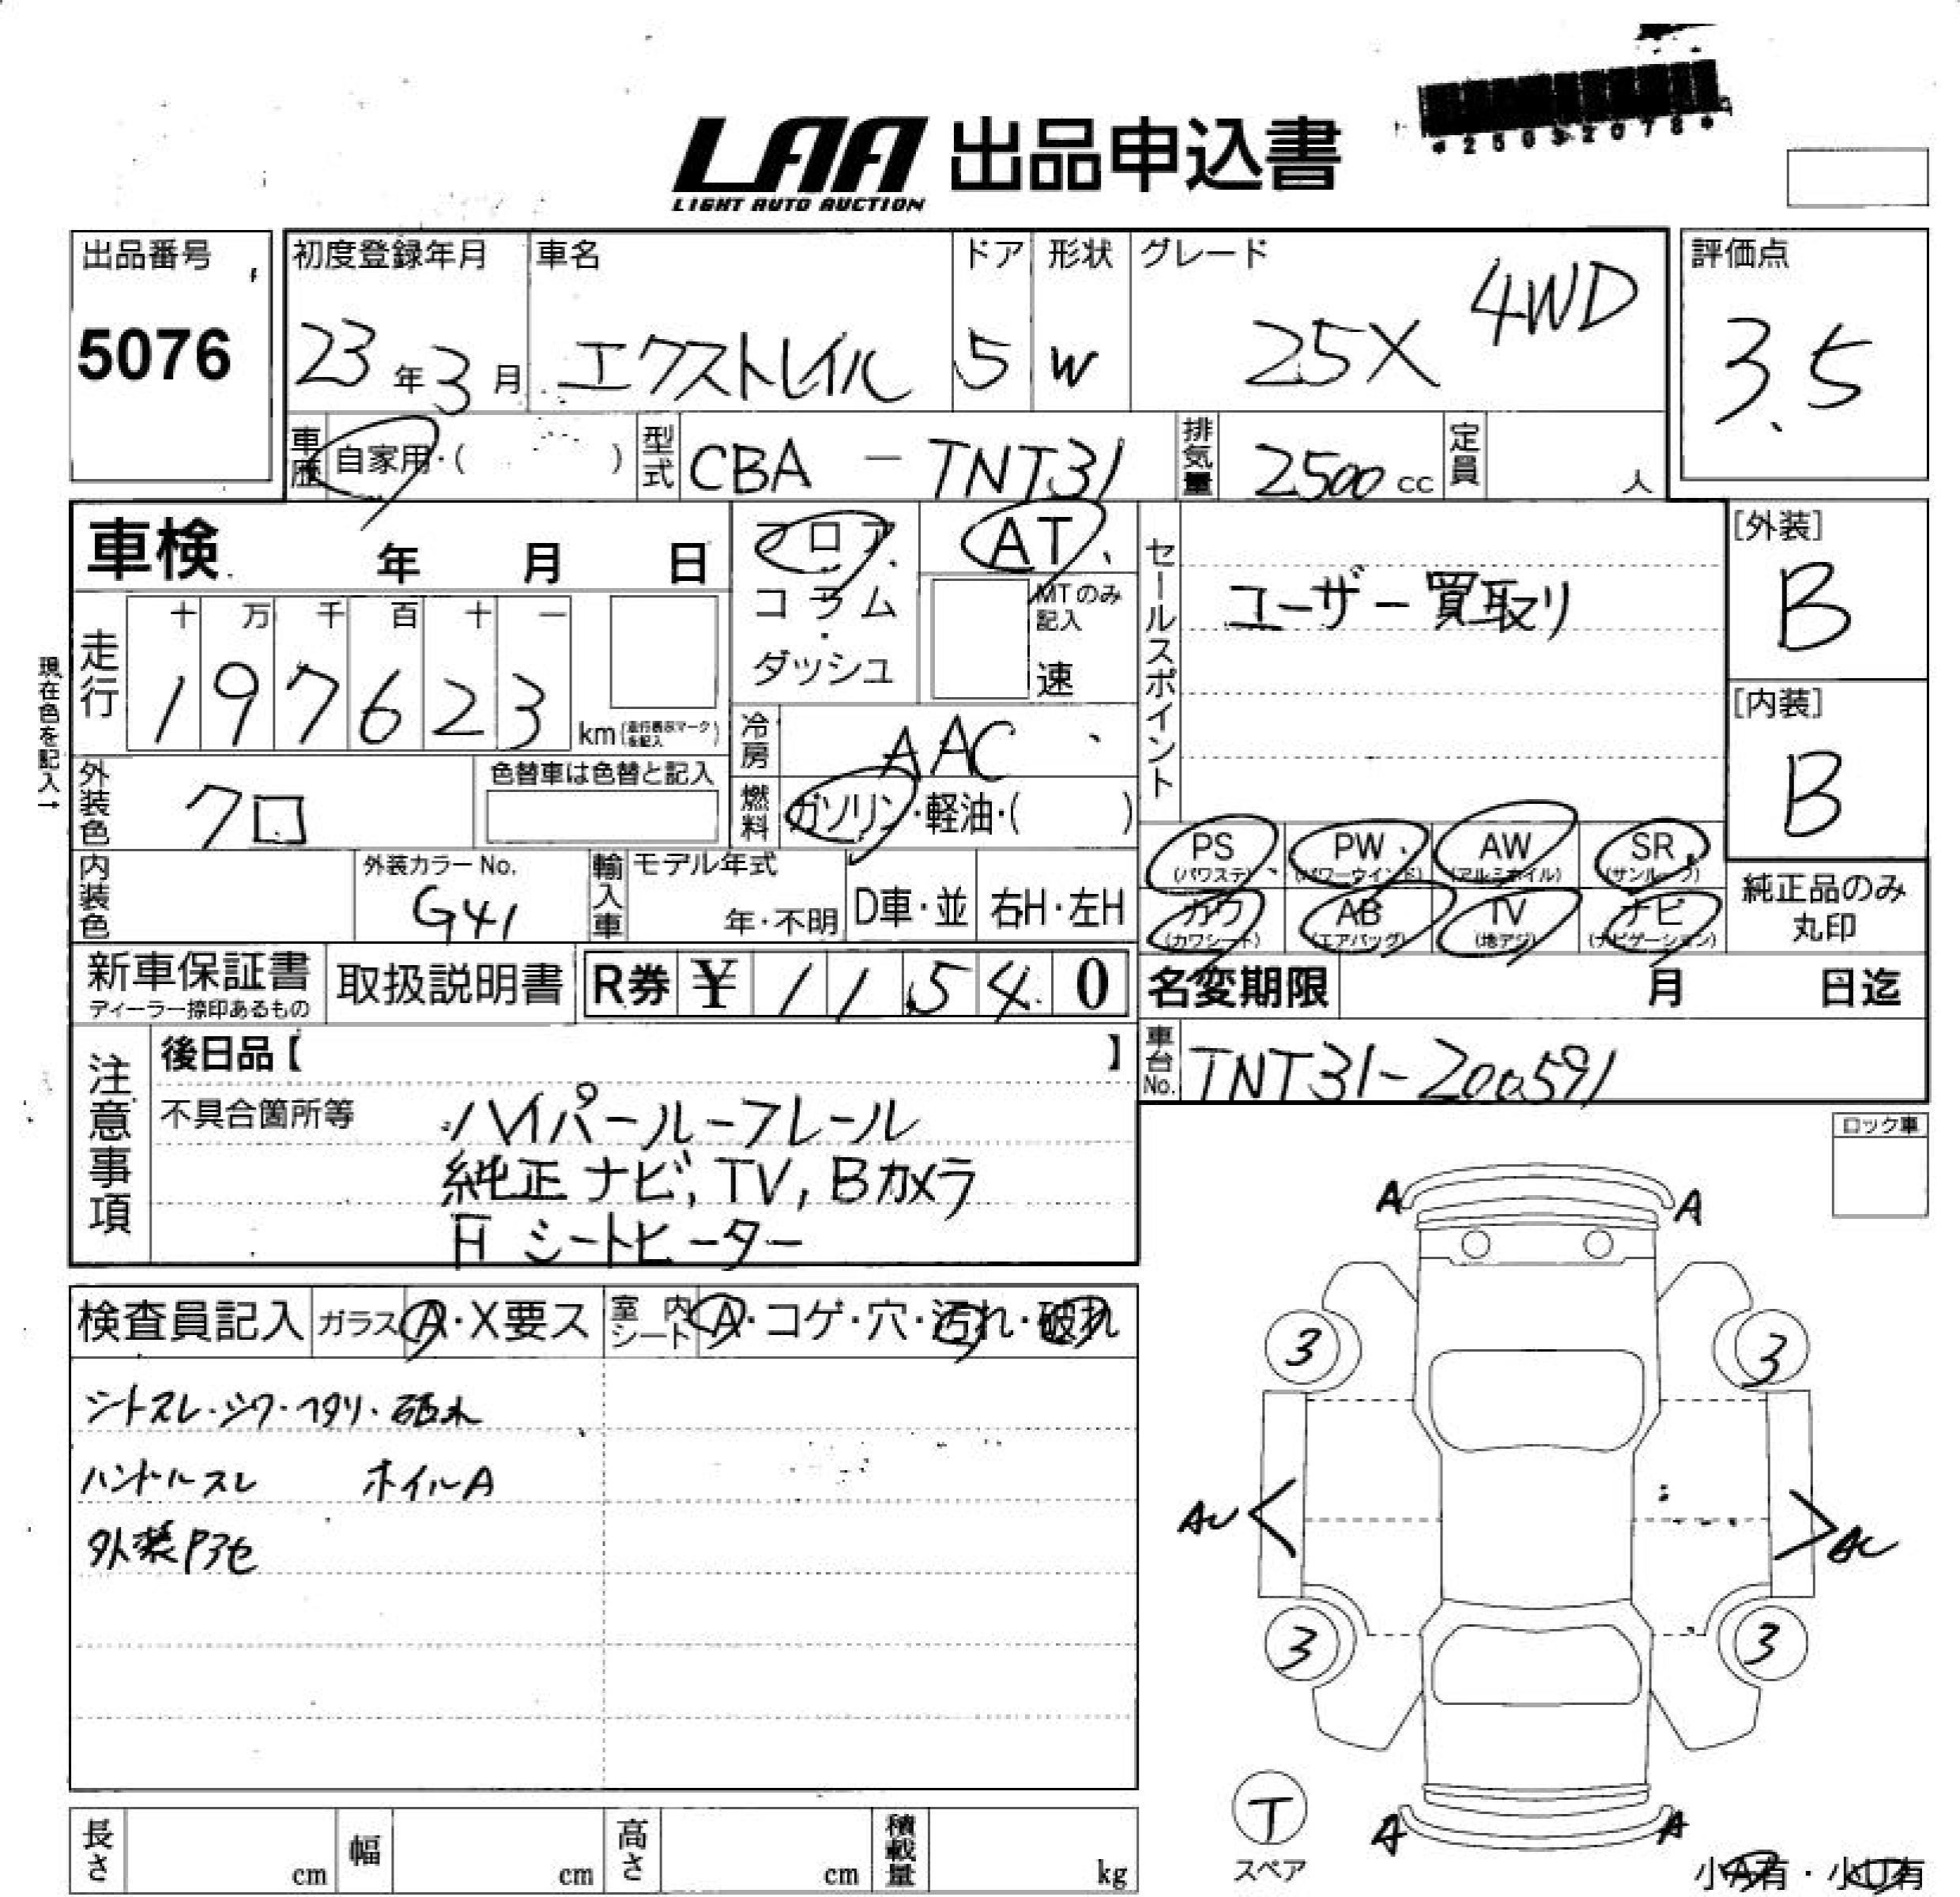 LAA 出品申込書
LIGHT AUTO AUCTION
*25032078*
出品番号
5076
初度登録年月
23年3月
車名
エクストレイル
ドア
5
形状
W
グレード
25X 4WD
評価点
3.5
車歴 自家用・( )
型式 CBA - TNT31
排気量 2500 cc
定員 人
車検 年 月 日
フロア・コラム・ダッシュ
AT
MTのみ記入
速
走行
十 万 千 百 十 一
1 9 7 6 2 3 km (走行表示マークを記入)
現在色を記入→
冷房 AAC
外装色 クロ
色替車は色替と記入
燃料 ガソリン・軽油・( )
内装色
外装カラーNo.
G41
輸入車 モデル年式
年・不明 D車・並 右H・左H
セールスポイント
ユーザー買取り
[外装]
B
[内装]
B
PS (パワステ) PW (パワーウインド) AW (アルミホイル) SR (サンルーフ)
カワ (カワシート) AB (エアバッグ) TV (地デジ) ナビ (ナビゲーション)
純正品のみ
丸印
新車保証書
ディーラー捺印あるもの
取扱説明書
R券 ¥ 1 1 5 4 0
名変期限 月 日迄
車台No. TNT31-200591
注意事項
後日品【 】
不具合箇所等
ハイパールーフレール
純正ナビ,TV,Bカメラ
シートヒーター
ロック車
検査員記入 ガラス A・X要ス 室内シート A・コゲ・穴・汚れ・破れ
シートスレ・シワ・ヘタリ・破れ
ハンドルスレ ホイルA
外装
A A
3 3
3 3
A A
T
スペア
小A有・小U有
長さ cm 幅 cm 高さ cm 積載量 kg